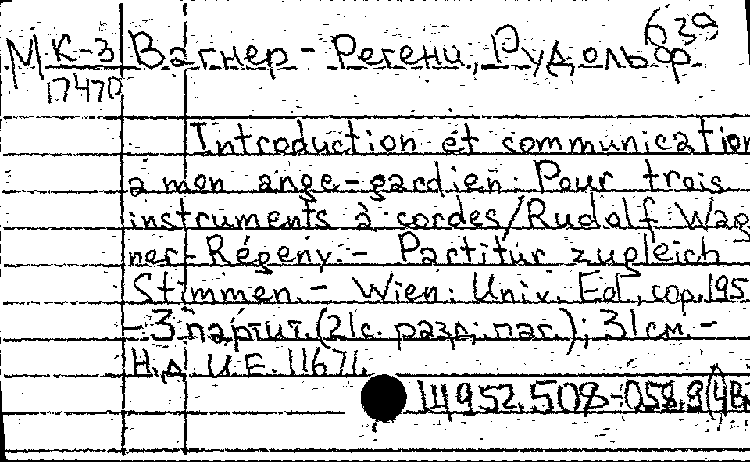 639
М К-3 Вагнер-Регени, Рудольф
17470
Introduction et communication
à mon ange-gardien: Pour trois
instruments à cordes/Rudolf Wag
ner-Régeny.- Partitur zugleich
Stimmen.- Wien: Univ. Ed., cop.195
-3 партит.(21с. разд. паг.); 31см.-
Н.д. U.E. 11671.
14952.508-058.9(4В